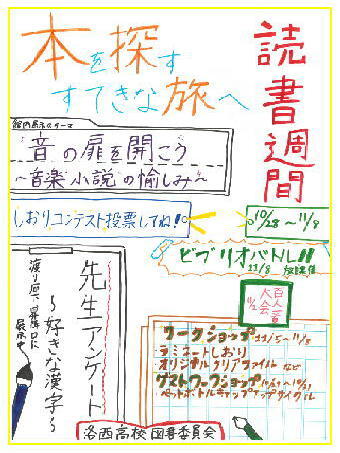 読書週間
本を探す
すてきな旅へ
館内展示のテーマ
音の扉を開こう
～音楽小説の愉しみ～
しおりコンテスト投票してね!
10/28～11/9
ビブリオバトル!!
11/8 放課後
百人一首大会
11/2
先生アンケート
～好きな漢字～
渡り廊下、昇降口に
展示中
ワークショップ 11/5～11/8
ラミネートしおり
オリジナルクリアファイル など
ゲストワークショップ
ペットボトルキャップアップサイクル
洛西高校 図書委員会